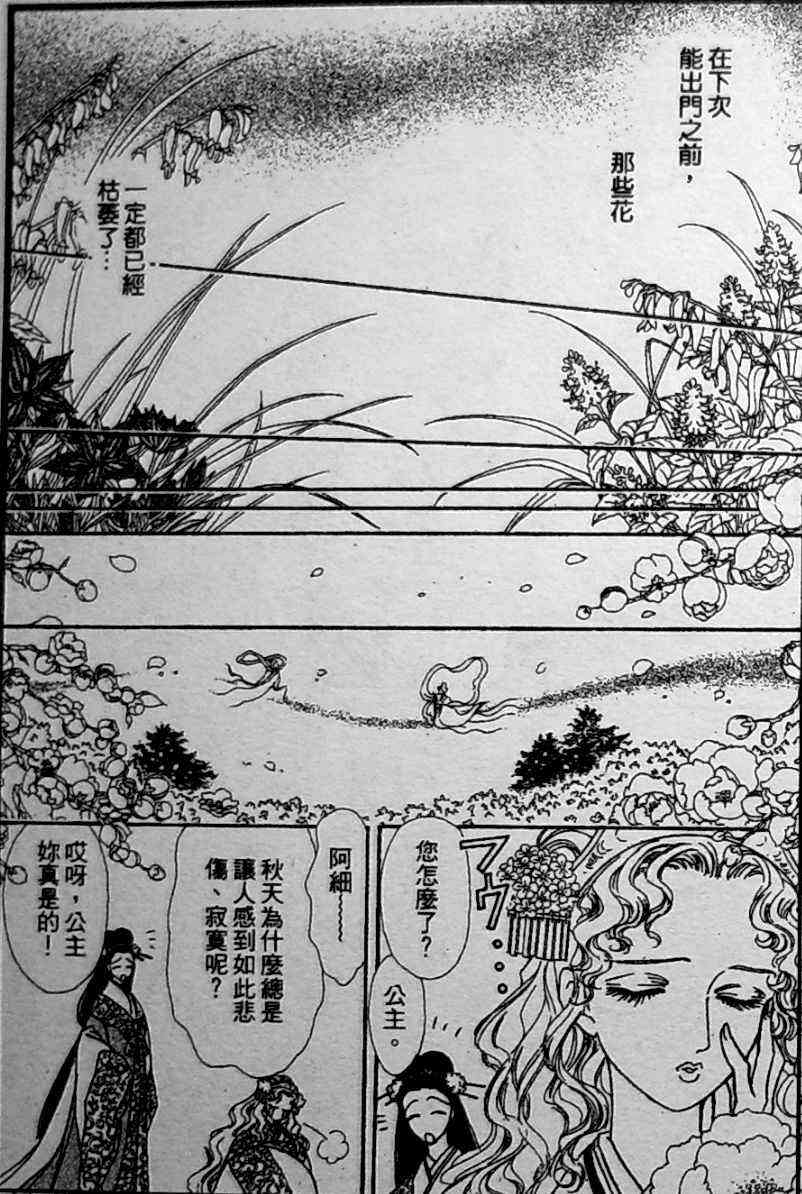 在下次
能出門之前，
那些花
一定都已經
枯萎了…
フウ…
您怎麼了？
公主。
阿細~~~~
秋天為什麼總是
讓人感到如此悲
傷、寂寞呢？
哎呀，公主
妳真是的！